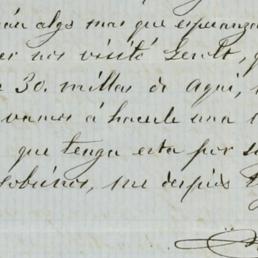 algo mas que esperanza
nos visitó
30. millas de aqui,
vamos á hacerle una
que tenga esta por
sobrinos, me despido